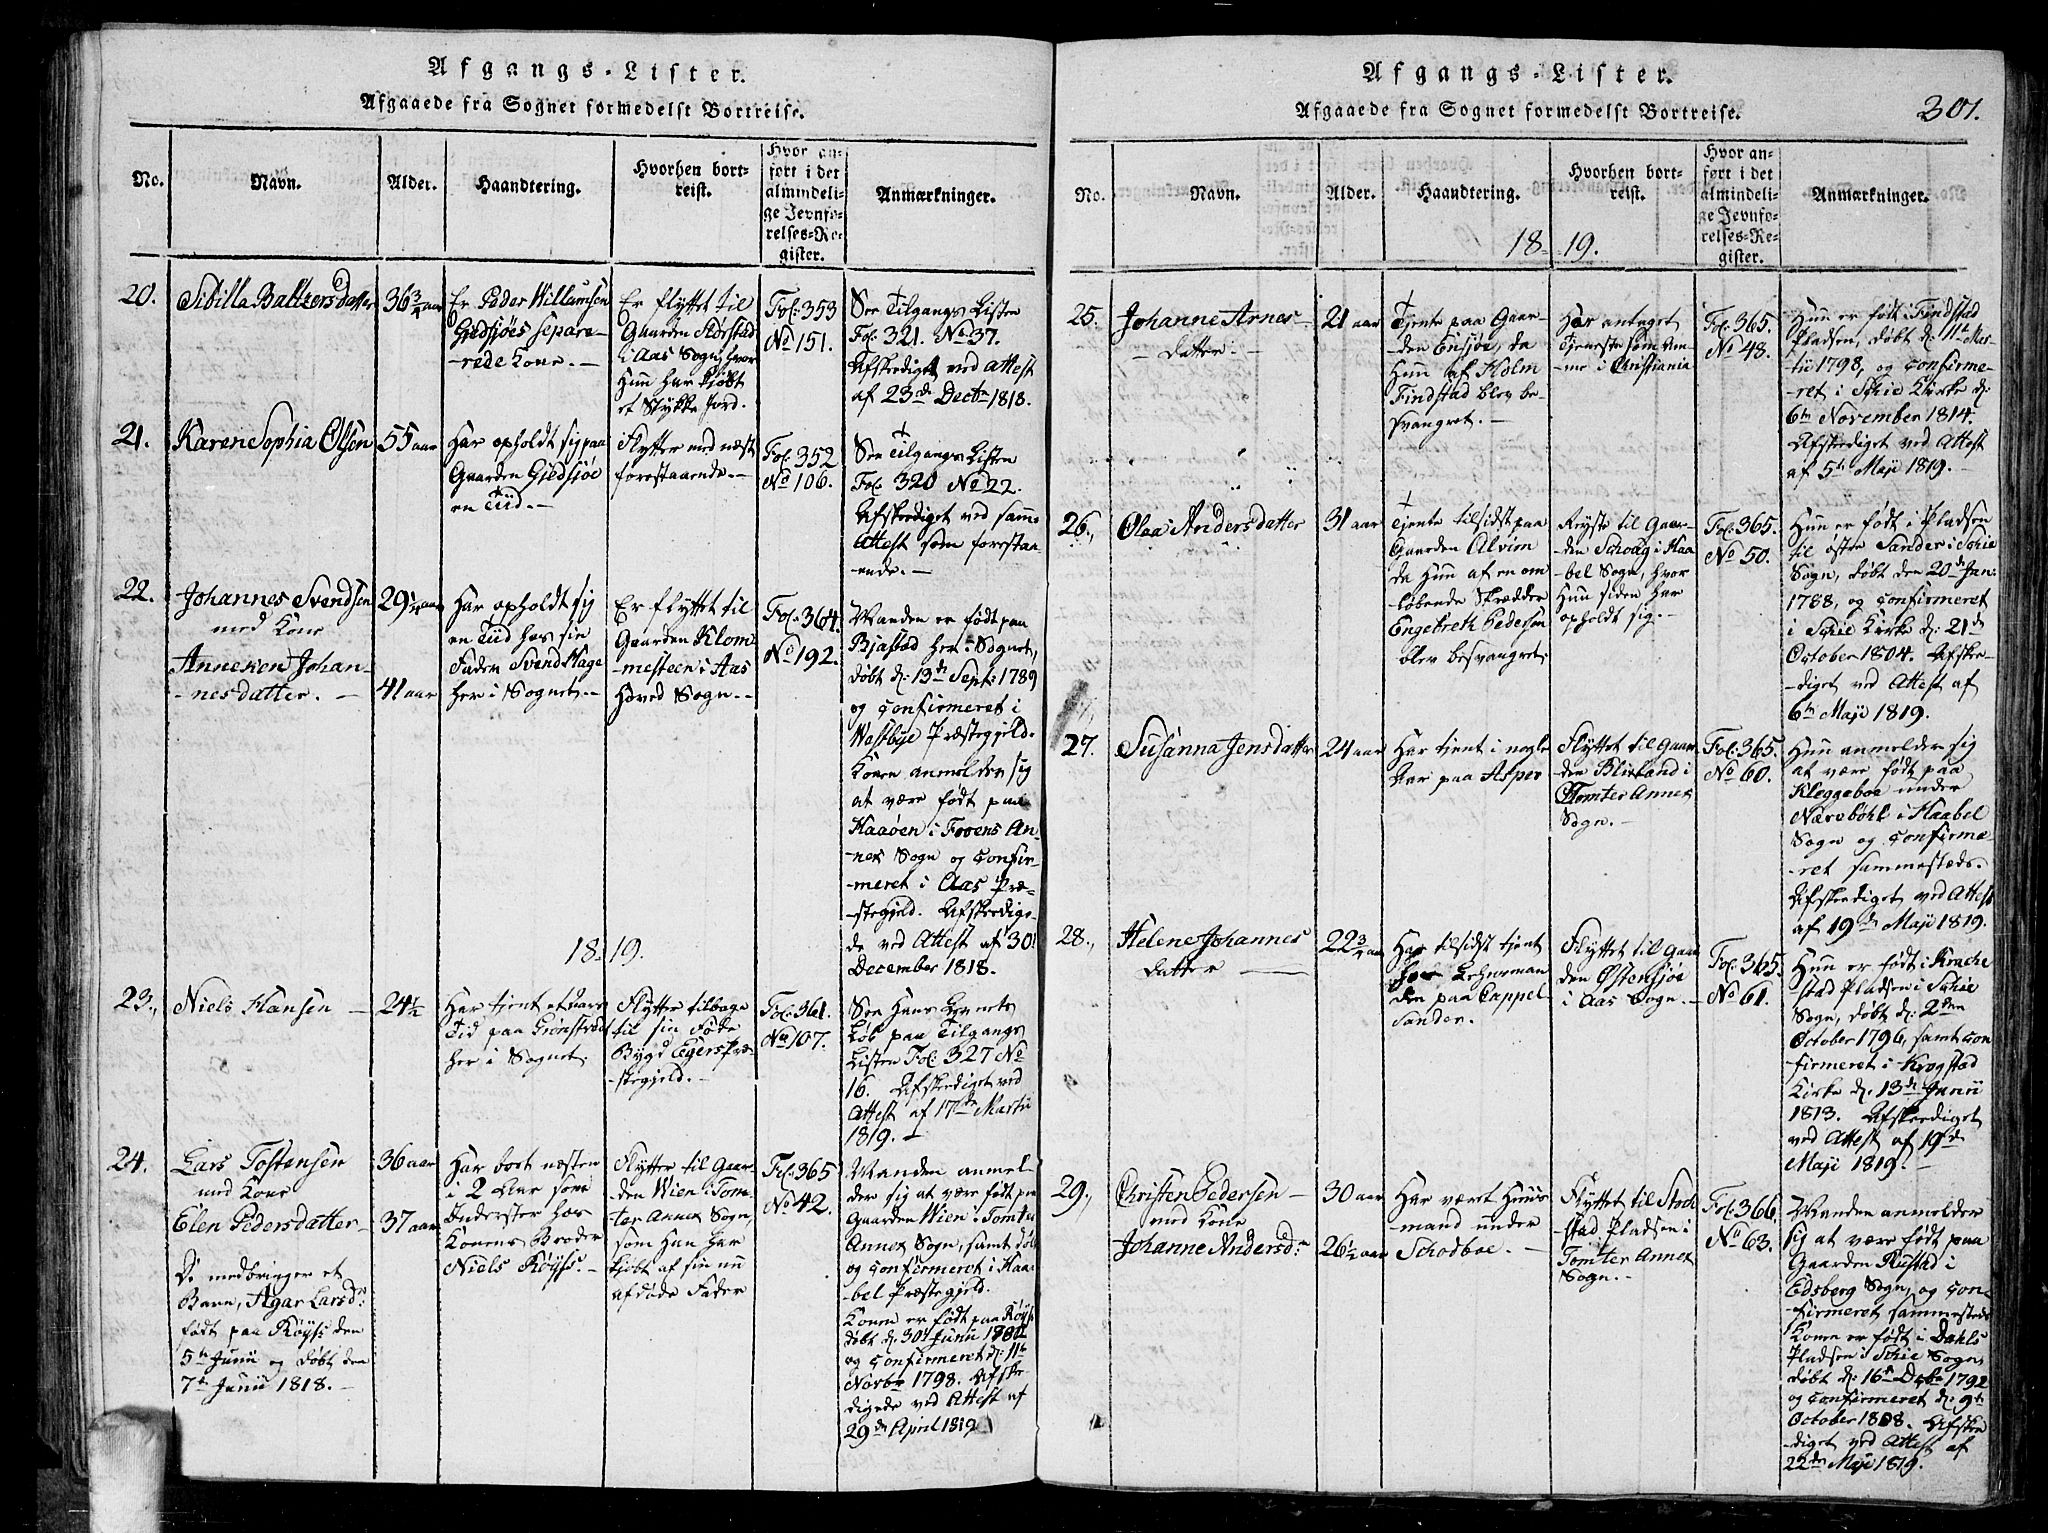 Afgangs-Lister.
Afgaaede fra Sognet formedelst Bortreise.
No.
Navn.
Alder.
Haandtering.
Hvorhen bort-
reist.
Hvor an-
ført i det
almindeli-
ge Jevnfø-
relses-Re-
gister.
Anmærkninger.
20.
Sibilla Baltzersdatter
36 3/4 aar
Er Peder Willumsen
Giedsjøes separe-
rede Kone. -
Er flyttet til
Gaarden Storstad
i Aas Sogn, hvor
Hun har kjøbt
et Stykke Jord.
Fol: 353
No 151.
See Tilgangs Listen
Fol: 321. No 37.
Afskediget ved Attest
af 23de Decbr 1818.
21.
Karen Sophia Olsen
55 aar
Har opholdt sig paa
Gaarden Giedsjøe
en Tiid. -
Flytter med næst
forestaaende. -
Fol: 352
No 106.
See Tilgangs Listen
Fol: 320 No 22.
Afskediget ved samme
Attest som forestaa-
ende. -
22.
Johannes Svendsen
med Kone
Anneken Johan-
-nesdatter. -
29 1/4 aar
41 aar
Har opholdt sig
en Tiid hos sin
Fader Svend Hage
her i Sognet. -
Er flyttet til
Gaarden Klom-
-mesteen i Aas
Hoved Sogn. -
Fol: 364.
No 192.
Manden er født paa
Bjastad her i Sognet,
døbt d: 13de Septr: 1789
og confirmeret i
Westbye Præstegjeld.
Konen anmelder sig
at være født paa
Haaøen i Froens An-
-nex Sogn og confir-
-meret i Aas Præ-
-stegjeld. Afskedige-
de ved Attest af 30t
December 1818.
18 19.
23.,
Niels Hansen -
24 1/2
Har tjent et Aars
Tid paa Grønsrød
her i Sognet.
Flytter tilbage
til sin Føde
Bygd Egers Præ-
stegjeld. -
Fol: 361.
No 107.
See Hans Levnets
Løb paa Tilgangs
Listen Fol: 327 No
16. Afskediget ved
Attest af 17de Martii
1819. -
24.
Lars Tostensen
med Kone
Elen Pedersdatter -
De medbringer et
Barn, Agar Larsdr:
født paa Røyss den
5te Junii og døbt den
7de Junii 1818. -
36 aar
37 aar
Har boet næsten
i 2 Aar som
Inderster hos
Konens Broder
Niels Røyss. -
Flytter til Gaar-
den Wien i Tom-
ter Annex Sogn,
som Han har
kjøbt af sin nu
afdøde Fader
Fol: 365
No 42.
Manden anmel-
der sig at være født paa
Gaarden Wien i Tomter
Annex Sogn, samt døbt
og confirmeret i Haa-
bel Præstegjeld.
Konen er født paa Røyss
døbt d: 30t Junii
og confirmeret d: 11te
Novbr 1798. Afske-
digede ved Attest af
29de April 1819
Afgangs-Lister.
Afgaaede fra Sognet formedelst Bortreise.
301.
No.
Navn.
Alder.
Haandtering.
Hvorhen bort-
reist.
Hvor an-
ført i det
almindeli-
ge Jevnfø-
relses-Re-
gister.
Anmærkninger.
18 19.
25.
Johanne Arnes-
- datter. -
21 aar
Tjente paa Gaar-
den Ensjøe, da
Hun af Holm
Findstad blev be-
svangret. -
Har antaget
Tjeneste som Am-
me i Christiania
Fol: 365.
No 48.
Hun er født i Findstad
Pladsen, døbt d: 11te Mar-
tii 1798, og confirme-
-ret i Schie Kirke d:
6te November 1814.
Afskediget ved Attest
af 5te Maji 1819. -
26.,
Olea Andersdatter
31 aar
Tjente tilsidst paa
Gaarden Alvim
da Hun af en om-
løbende Skrædder
Engebreth Pedersen
blev besvangret.
Reyste til Gaar-
den Schoug i Haa-
bel Sogn, hvor
Hun siden har
opholdt sig. -
Fol: 365.
No 50.
Hun er født i Pladsen
til østre Sander i Schie
Sogn, døbt den 20de Jan:
1788, og confirmeret
i Schie Kirke d: 21de
October 1804. Afske-
-diget ved Attest af
6te Maji 1819.
27.
Susanna Jensdatter
24 aar
Har tjent i nogle
Aar paa Asper
Flyttet til Gaar-
den Blixland i
Tomter Annex
Sogn. -
Fol: 365.
No 60.
Hun anmelder sig
at være født paa
Kleggeboe under
Nærebøhl i Haabel
Sogn og confirme-
-ret sammesteds.
Afskediget ved Attest
af 19de Maji 1819.
28.,
Helene Johannes
datter
22 3/4 aar
Har tilsidst tjent
hos Lehnsman-
den paa Cappel-
Sander.
Flyttet til Gaar-
den Østensjøe
i Aas Sogn. -
Fol: 365.
No 61.
Hun er født i Krache-
stad Pladsen i Schie
Sogn, døbt d: 2den
October 1796, samt con-
firmeret i Krogstad
Kirke d: 13de Junii
1813. Afskediget
ved Attest af 19de
Maji 1819. -
29.,
Christen Pedersen -
med Kone
Johanne Andersdr:
30 aar
26 1/2 aar
Har været Huus-
mand under
Schodboe. -
Flyttet til Stoch-
stad Pladsen i
Tomter Annex
Sogn. -
Fol: 366.
No 63.
Manden anmelder
sig at være født paa
Gaarden Rustad i
Edsberg Sogn, og con-
-firmeret sammesteds
Konen er født i Dahls
Pladsen i Schie Sogn,
døbt d: 16de Decbr 1792
og confirmeret d: 9de
October 1808. Afske-
-diget ved Attest af
22de Maji 1819.